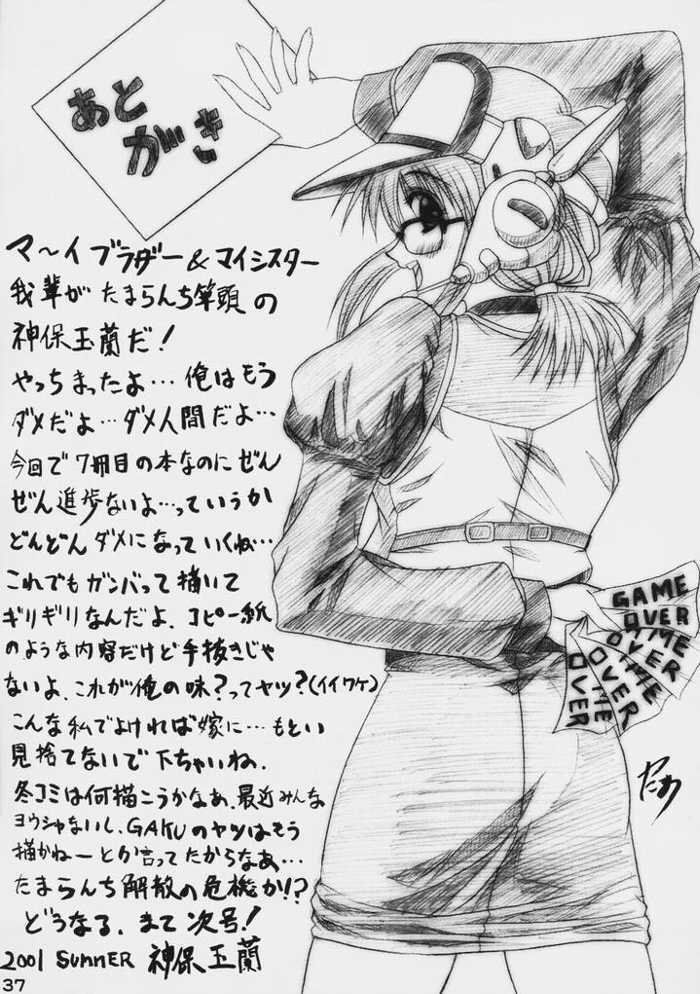 あと
がき
マ〜イブラザー&マイシスター
我輩がたまらんち筆頭の
神保玉蘭だ!
やっちまったよ…俺はもう
ダメだよ…ダメ人間だよ…
今回で7冊目の本なのにぜん
ぜん進歩ないよ…っていうか
どんどんダメになっていくね…
これでもガンバって描いて
ギリギリなんだよ、コピー紙
のような内容だけど手抜きじゃ
ないよ、これが俺の味?ってヤツ?(イイワケ)
こんな私でよければ嫁に…もとい
見捨てないで下ちいね、
冬コミは何描こうかなあ、最近みんな
ヨウシャないし、GAKUのヤツはもう
描かねーとか言ってたからなあ…
たまらんち解散の危機か!?
どうなる、まて次号!
2001 SUMMER 神保玉蘭
37
GAME
OVER
GAME
OVER
OVER
OVER